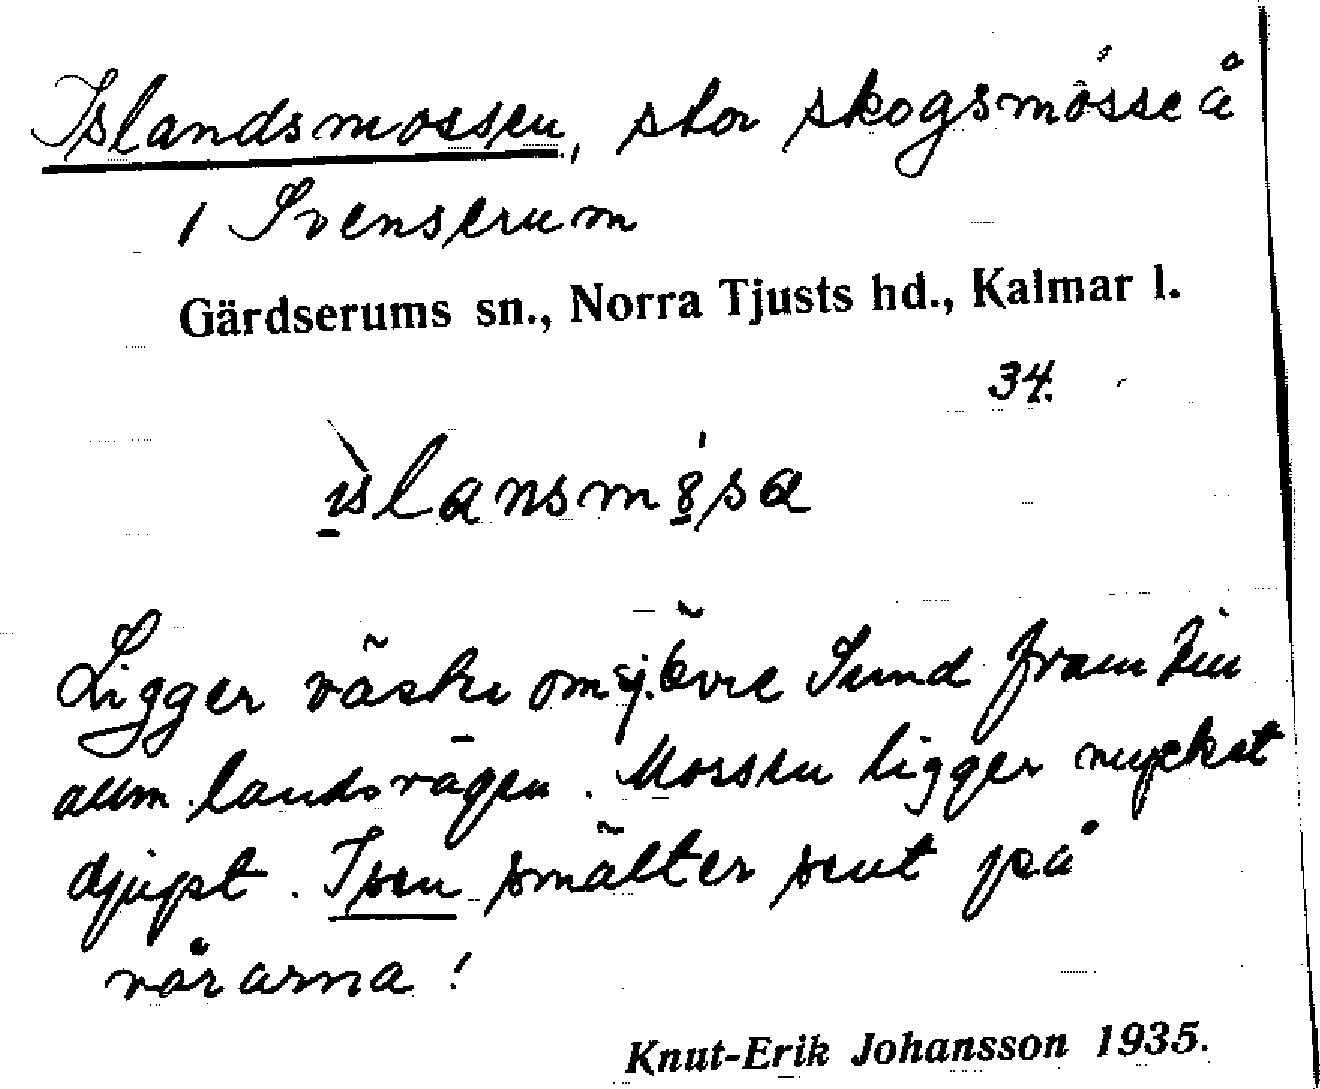 Islandsmossen, stor skogsmosse å
i Svenserum
Gärdserums sn., Norra Tjusts hd., Kalmar l.
34.
ìslansmósa
Ligger väster om sj. Övre Sund fram till
allm. landsvägen. Mossen ligger mycket
djupt. Isen smälter sent på
vårarna!
Knut-Erik Johansson 1935.